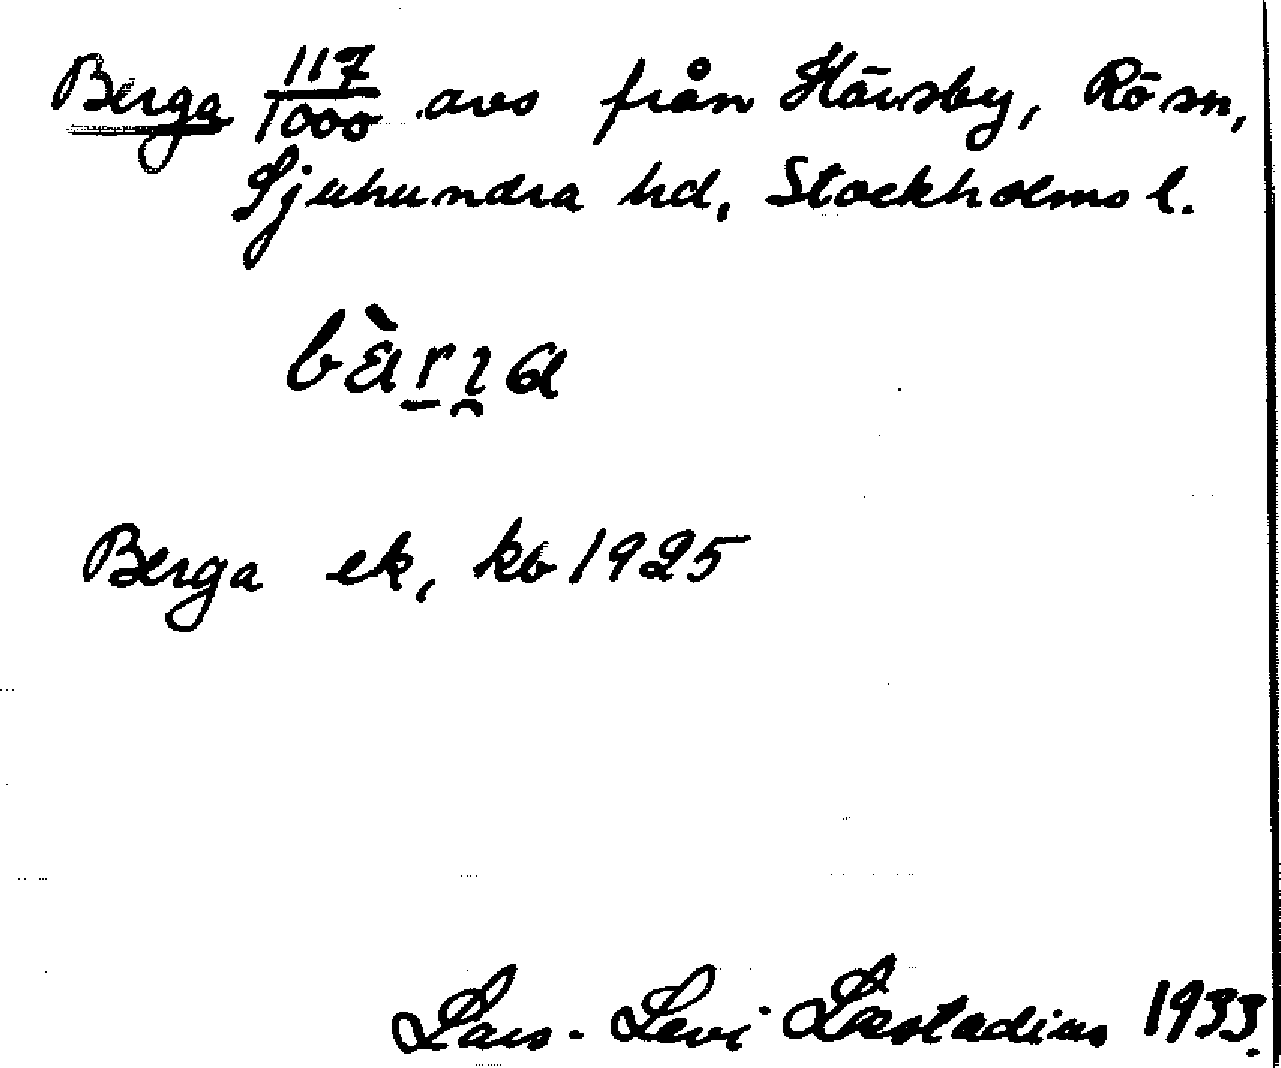 Berga 117/1000 avs från Hävsby, Rö sn,
Sjuhundra hd, Stockholms l.
bàrɿa
Berga ek, kb 1925
Lars-Levi Læstadius 1933.